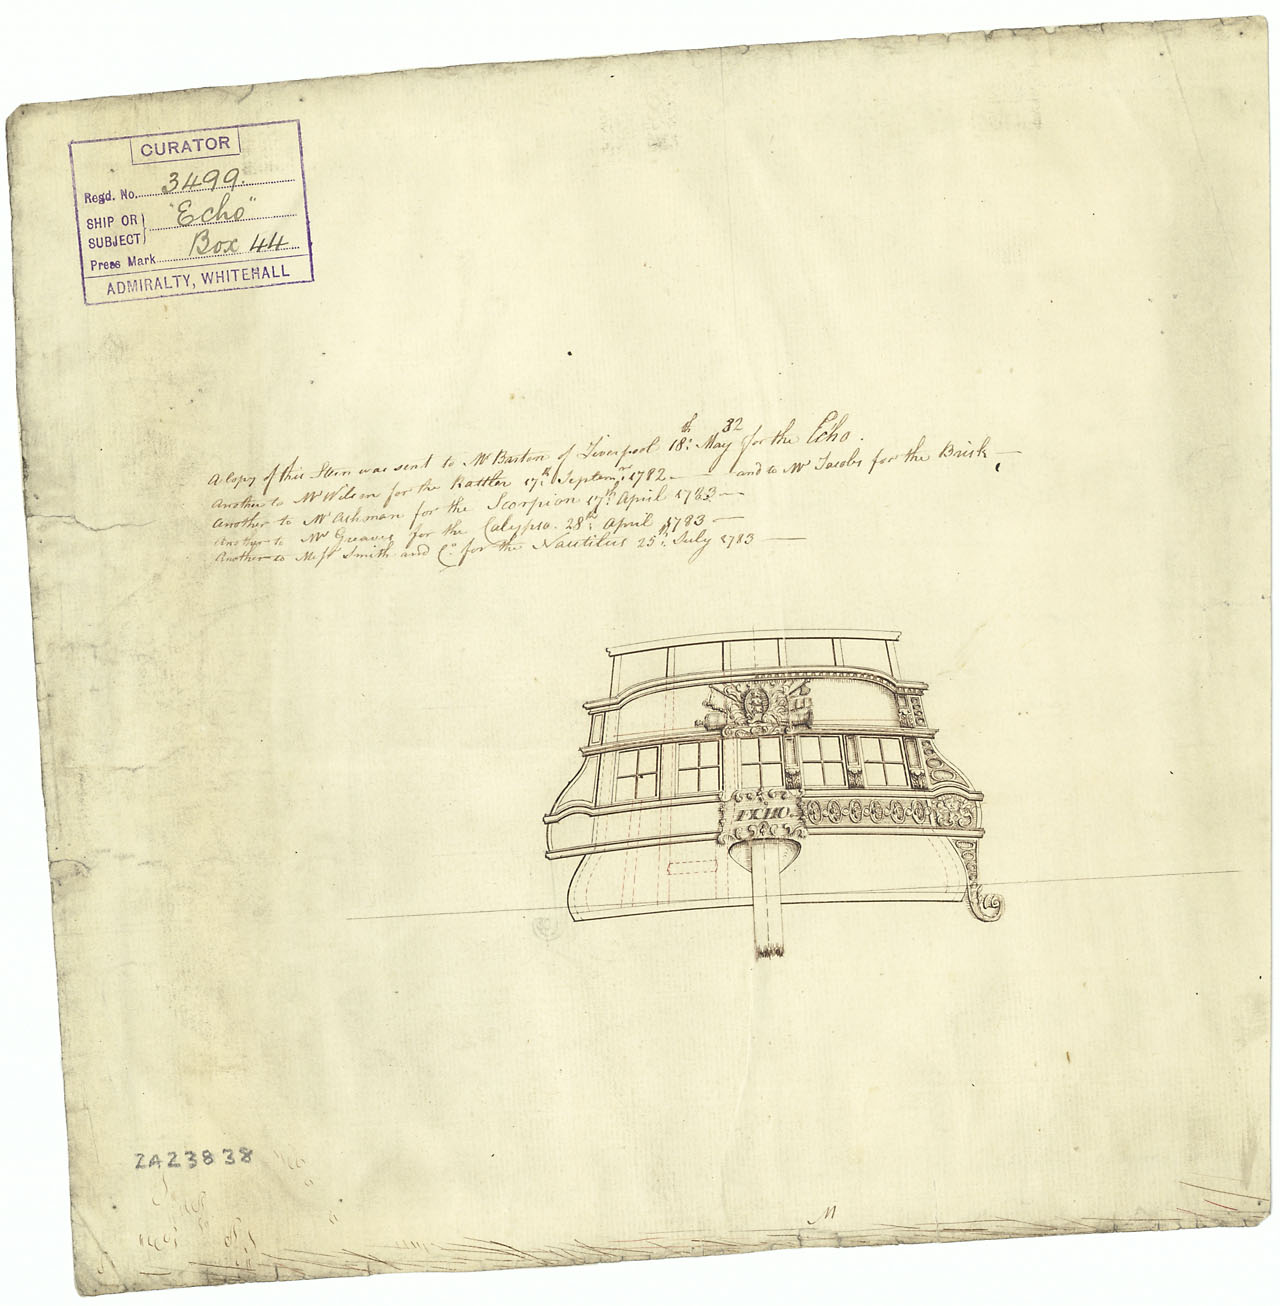 CURATOR
Regd. No. 3499.
SHIP OR SUBJECT "Echo"
Press Mark Box 44
ADMIRALTY, WHITEHALL
A Copy of this Stern was sent to Mr Barton of Liverpool 18th May 82 for the Echo.
Another to Mr Wilson for the Rattler 17th Septemr 1782 — and to Mr Jacobs for the Brisk —
Another to Mr Ashman for the Scorpion 17th April 1783 —
Another to Mr Greaves for the Calypso. 28th April 1783 —
Another to Messrs Smith and Co. for the Nautilus 25th July 1783 —
ECHO
ZAZ3838
M